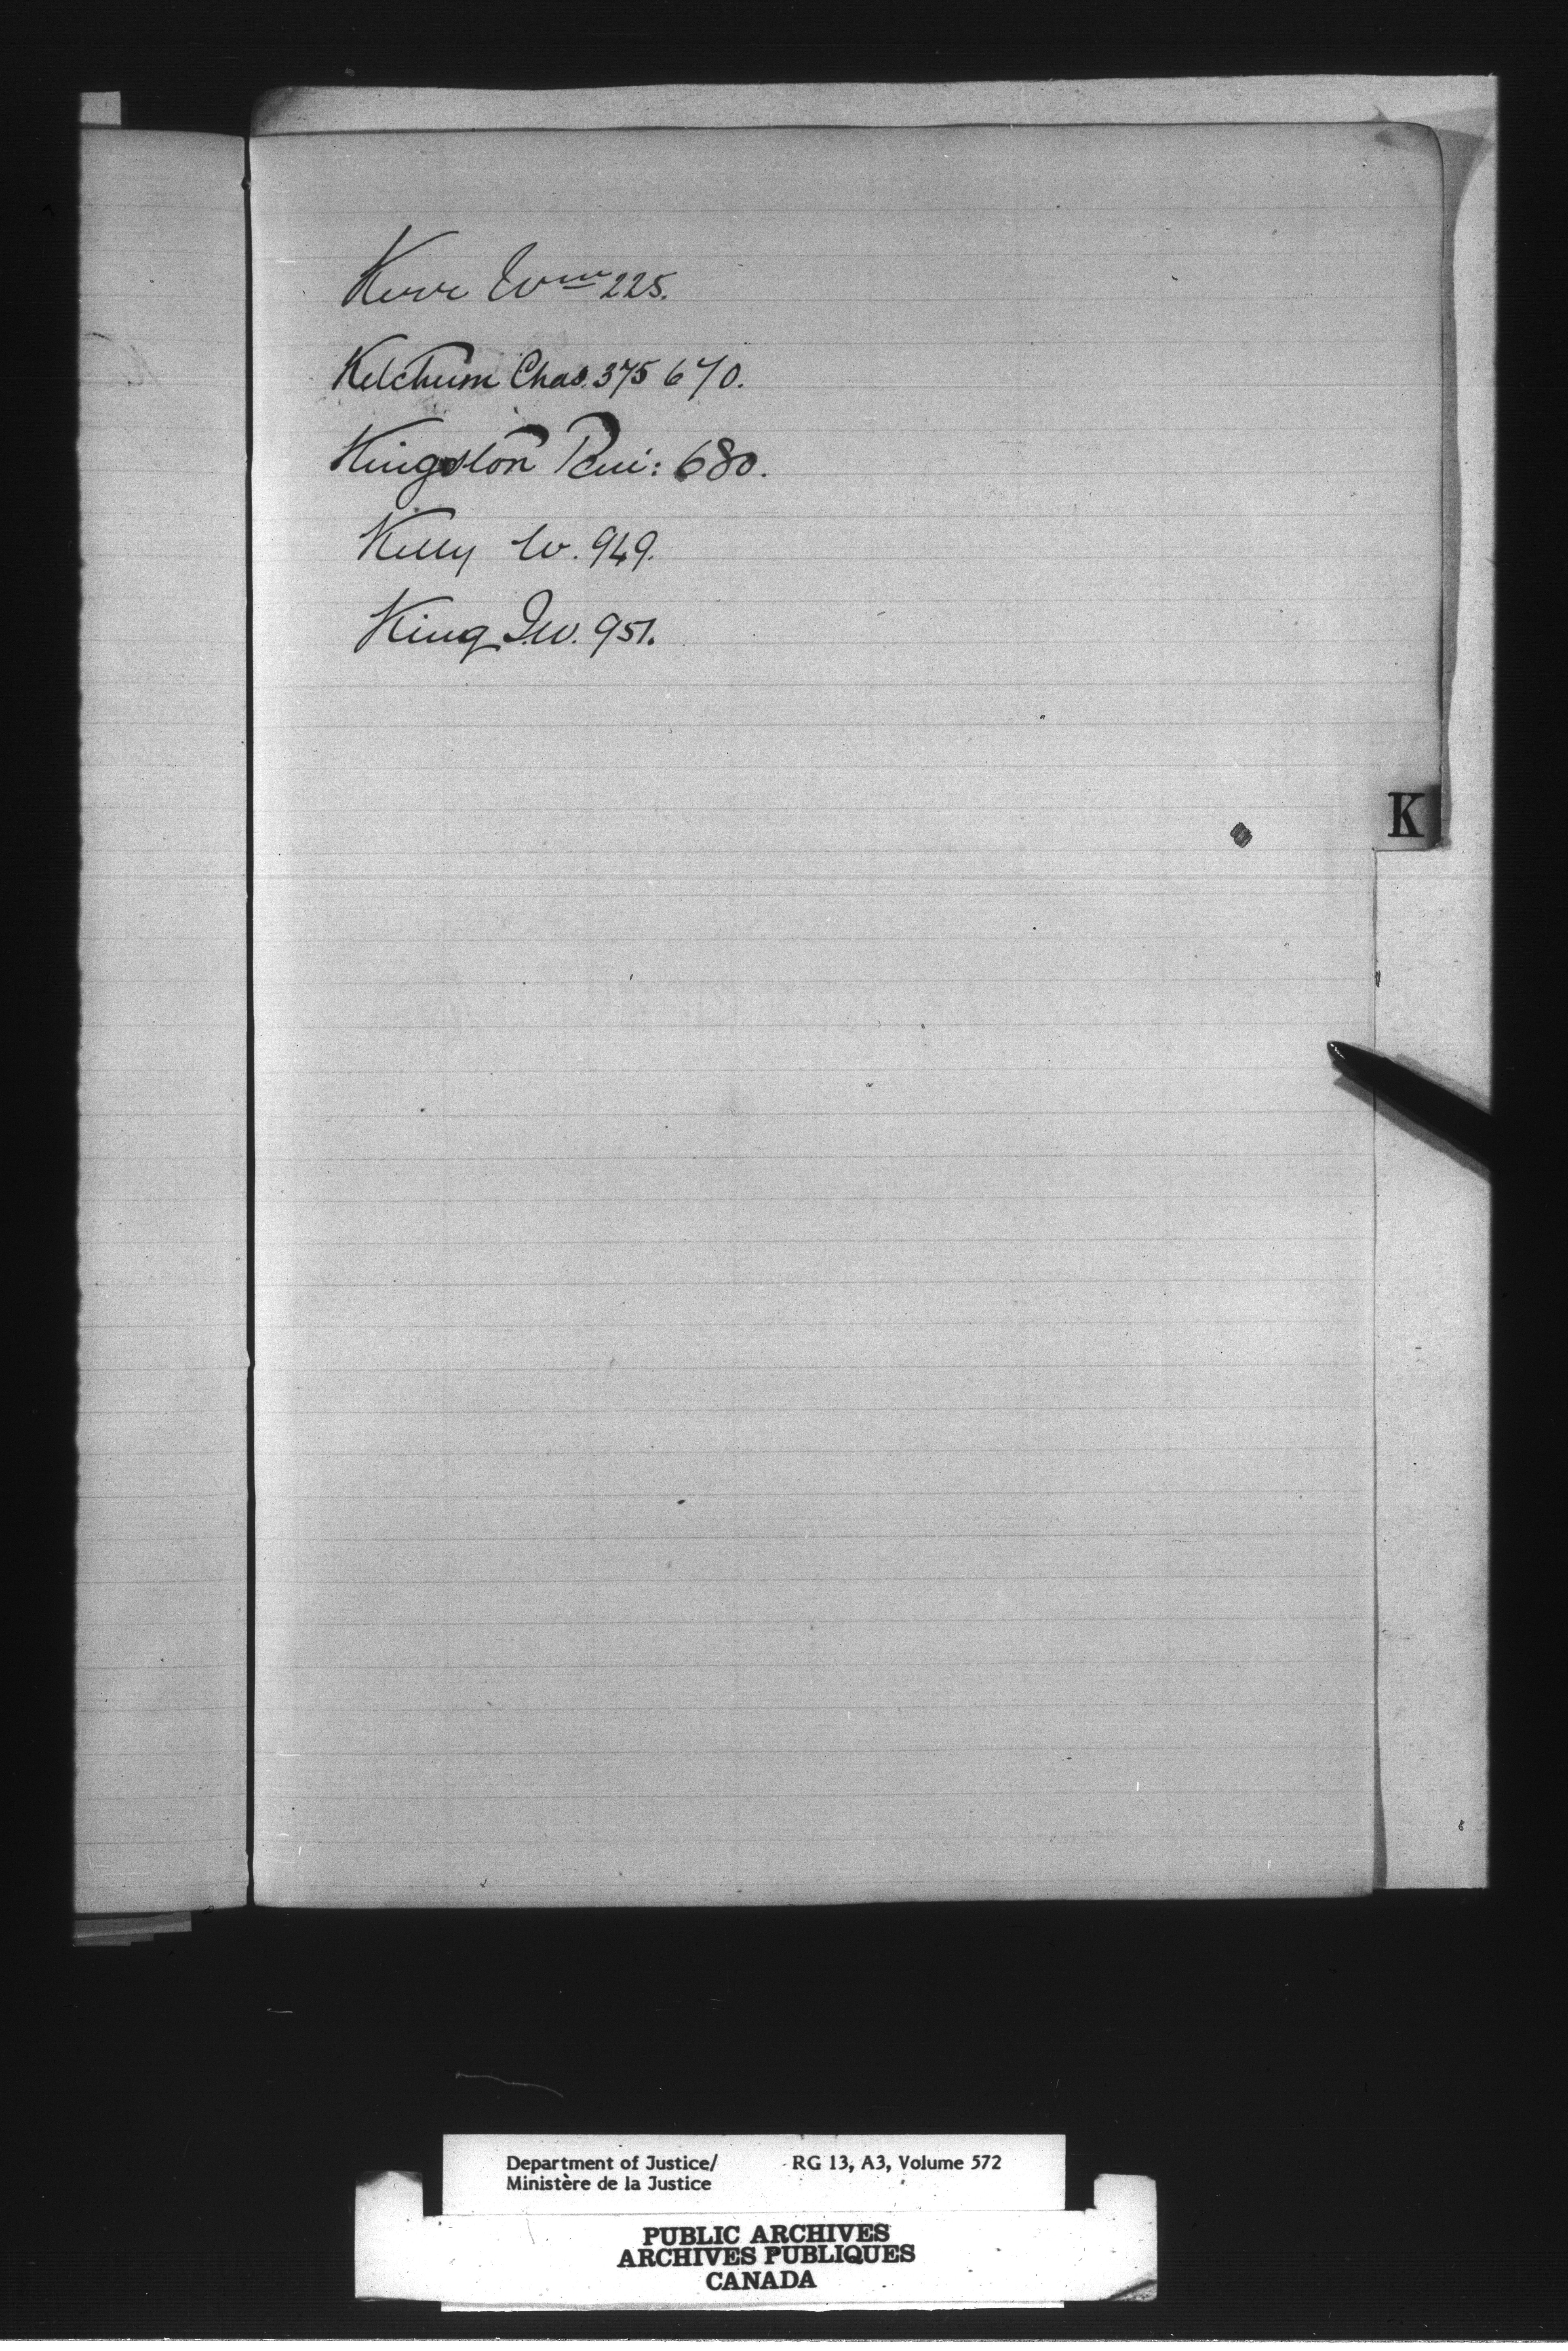 Kerr Wm 225.
Ketchum Chas. 375 670.
Kingston Peni: 680.
Kelly W. 949.
King J.W. 951.
K
Department of Justice/ RG 13, A3, Volume 572
Ministère de la Justice
PUBLIC ARCHIVES
ARCHIVES PUBLIQUES
CANADA